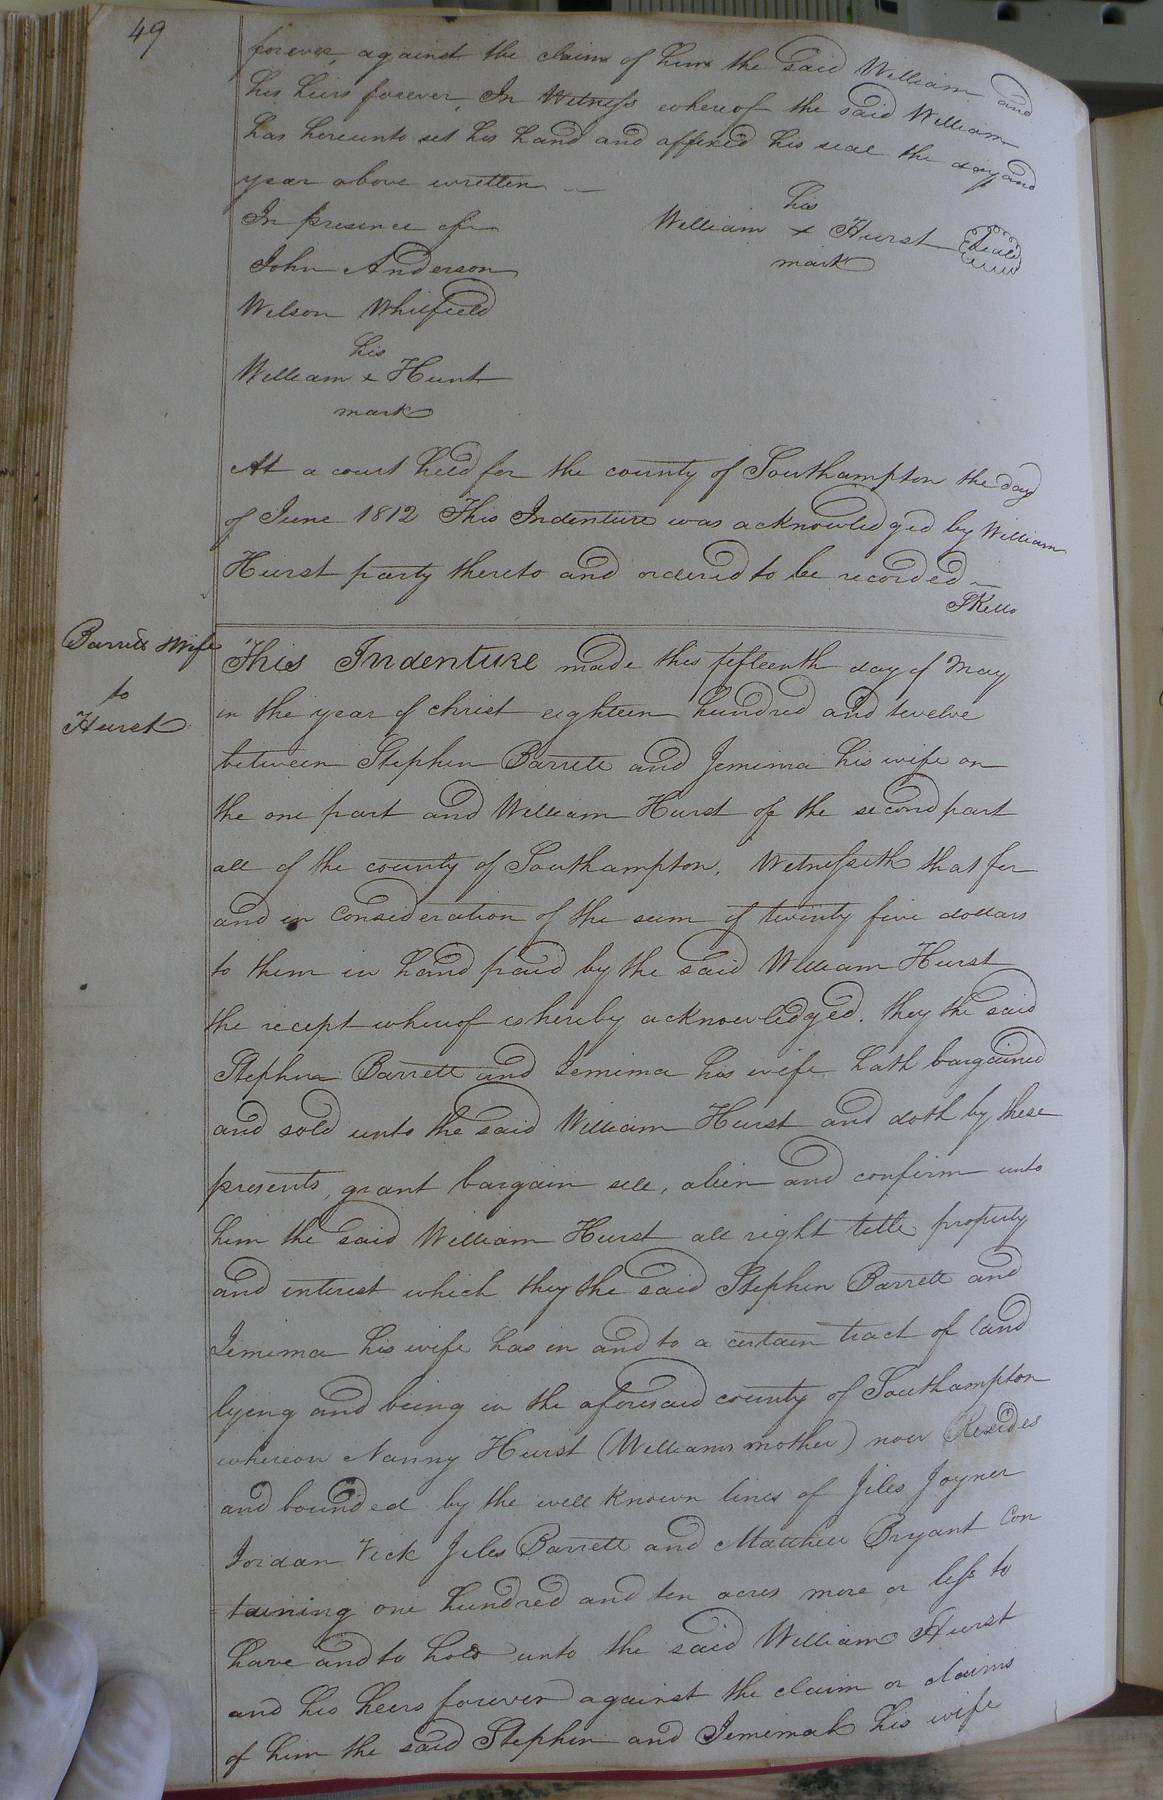 49
forever, against the claim of him the said William and
his heirs forever. In Witness whereof the said William
has hereunto set his hand and affixed his seal the day and
year above written
In presence of
his
William x Hurst Seal
mark
John Anderson
Wilson Whitfield
his
William x Hunt
mark
At a court held for the county of Southampton the day
of June 1812 This Indenture was acknowledged by William
Hurst party thereto and ordered to be recorded
SKello
Barrett & Wife
to
Hurst
This Indenture made this fifteenth day of May
in the year of christ eighteen hundred and twelve
between Stephen Barrett and Jemima his wife on
the one part and William Hurst of the second part
all of the county of Southampton, Witnesseth that for
and in consideration of the sum of twenty five dollars
to them in hand paid by the said William Hurst
the recept whereof is hereby acknowledged. they the said
Stephen Barrett and Jemima his wife hath bargained
and sold unto the said William Hurst and doth by these
presents, grant bargain sell, alien and confirm unto
him the said William Hurst all right title property
and interest which they the said Stephen Barrett and
Jemima his wife has in and to a certain tract of land
lyeng and being in the aforesaid county of Southampton
whereon Nanny Hurst (Williams mother) now Resides
and bounded by the well known lines of Jiles Joyner
Jordan Vick Jiles Barrett and Matthew Bryant Con
taining one hundred and ten acres more or less to
have and to hold unto the said William Hurst
and his heirs forever against the claim or claims
of him the said Stephen and Jemimah his wife